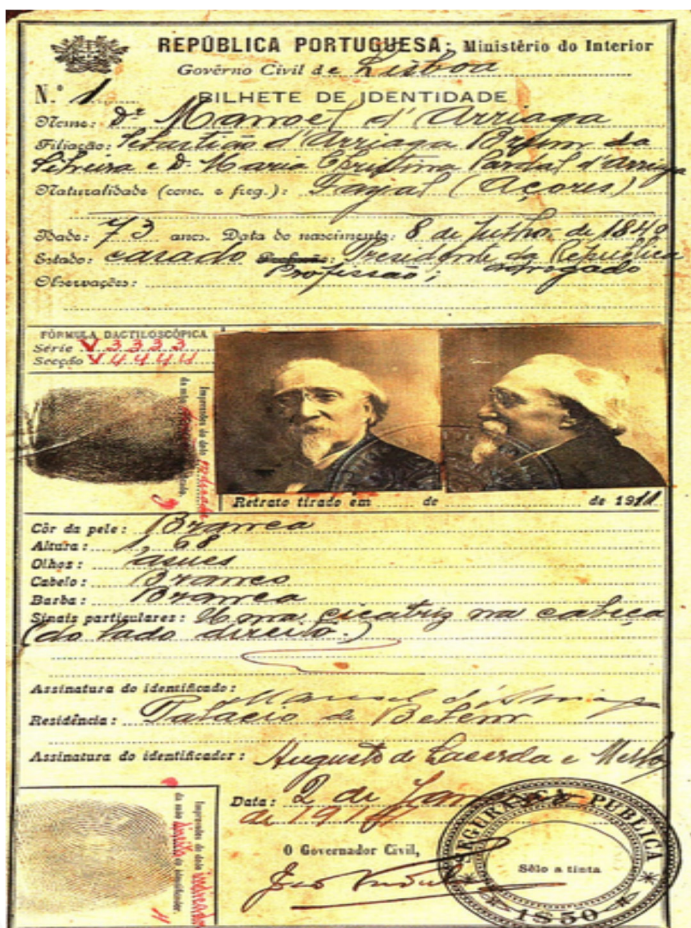 REPÚBLICA PORTUGUESA; Ministério do Interior
Govêrno Civil de Lisboa
N.º 1
BILHETE DE IDENTIDADE
Nome: Dr Manoel d'Arriaga
Filiação: Sebastião d'Arriaga Brum da
Silveira e D. Maria Christina Pardal d'Arriaga
Naturalidade (conc. e freg.): Fayal (Açores)
Idade: 73 anos. Data do nascimento: 8 de Julho de 1840
Estado: casado Profissão: Presidente da Republica
Profissão; advogado
Observações:
FÓRMULA DACTILOSCÓPICA
Série V 3 3 3 3
Secção V 4 4 4 4
Impressões do dedo
da mão
Retrato tirado em de de 1911
Côr da pele: Branca
Altura: 1,68
Olhos: asues
Cabelo: Branco
Barba: Branca
Sinais particulares: Uma cicatriz na cabeça
(do lado direito.)
Assinatura do identificado: Manoel d'Arriaga
Residência: Palacio de Belem
Assinatura do identificador: Augusto de Lacerda e Mello
Impressões do dedo indicador
da mão direita do identificador.
Data: 2 de Jan
de 191
O Governador Civil,
SEGURANÇA PUBLICA
Sêlo a tinta
1850